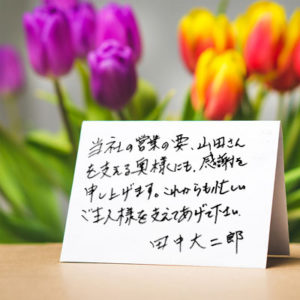 当社の営業の要、山田さん
を支える奥様にも、感謝を
申し上げます。これからも忙しい
ご主人様を支えてあげて下さい
田中大二郎